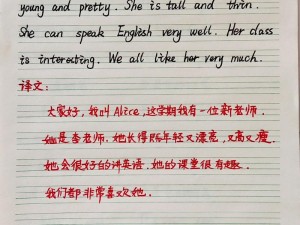 young and pretty. She is tall and thin.
She can speak English very well. Her class
is interesting. We all like her very much.
译文:
大家好,我叫Alice,这学期我有一位新老师.
她是李老师.她长得既年轻又漂亮,又高又瘦.
她会很好的讲英语.她的课堂很有趣.
我们都非常喜欢她.